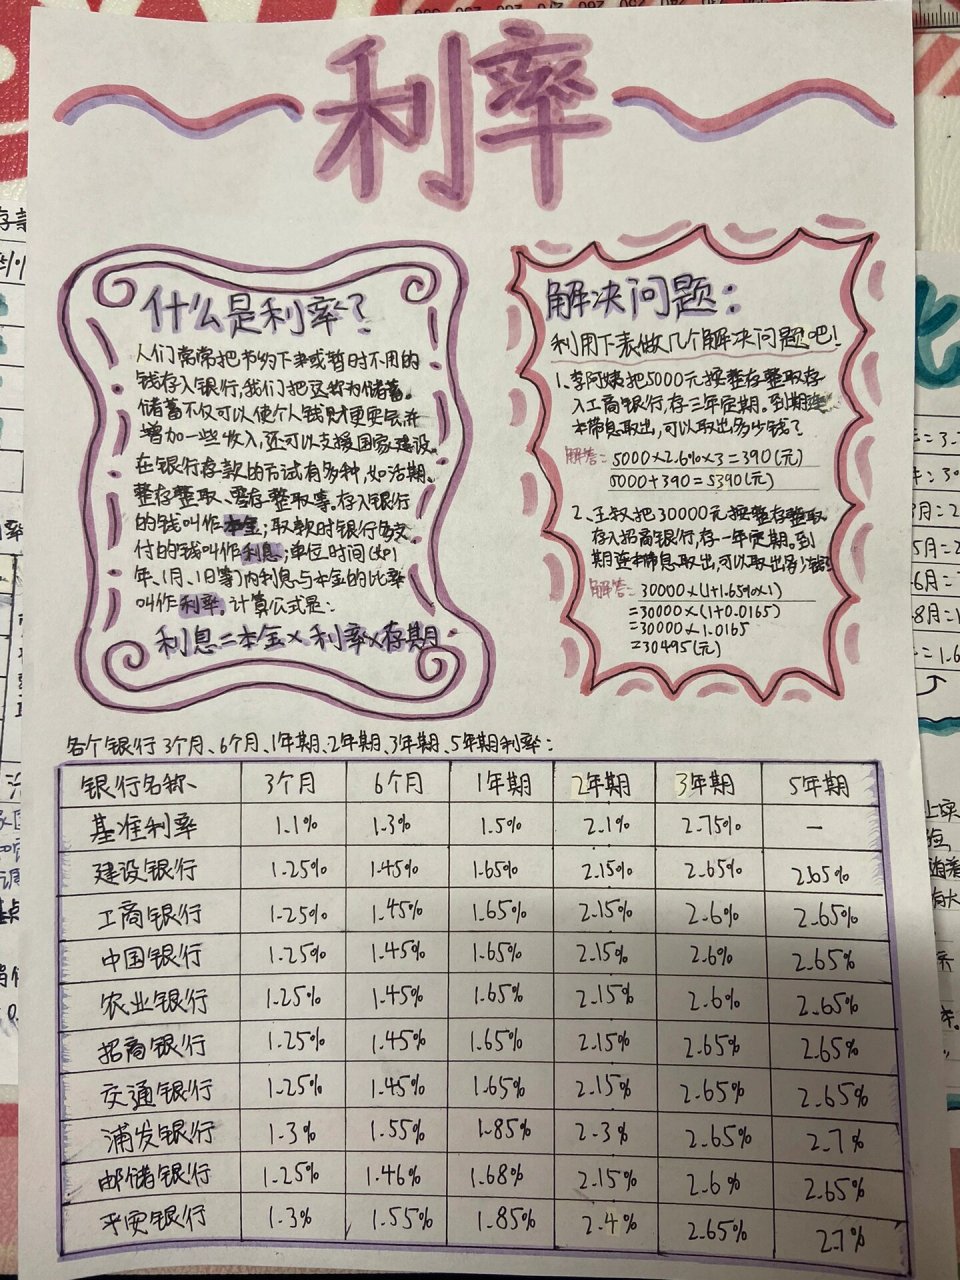 利率
什么是利率?
人们常常把节约下来或暂时不用的
钱存入银行,我们把这称为储蓄。
储蓄不仅可以使个人钱财更安全,并
增加一些收入,还可以支援国家建设。
在银行存款的方试有多种,如活期、
整存整取、零存整取等。存入银行
的钱叫作本金;取款时银行多支
付的钱叫作利息;单位时间(如1
年、1月、1日等)内利息与本金的比率
叫作利率。计算公式是:
利息=本金×利率×存期
解决问题:
利用下表做几个解决问题吧!
1、李阿姨把5000元按整存整取存
入工商银行,存三年定期。到期连
本带息取出,可以取出多少钱?
解答:5000×2.6%×3=390(元)
5000+390=5390(元)
2、王叔把30000元按整存整取
存入招商银行,存一年定期。到
期连本带息取出,可以取出多少钱?
解答:30000×(1+1.65%×1)
=30000×(1+0.0165)
=30000×1.0165
=30495(元)
各个银行3个月、6个月、1年期、2年期、3年期、5年期利率:
银行名称 3个月 6个月 1年期 2年期 3年期 5年期
基准利率 1.1% 1.3% 1.5% 2.1% 2.75% —
建设银行 1.25% 1.45% 1.65% 2.15% 2.65% 2.65%
工商银行 1.25% 1.45% 1.65% 2.15% 2.6% 2.65%
中国银行 1.25% 1.45% 1.65% 2.15% 2.6% 2.65%
农业银行 1.25% 1.45% 1.65% 2.15% 2.6% 2.65%
招商银行 1.25% 1.45% 1.65% 2.15% 2.65% 2.65%
交通银行 1.25% 1.45% 1.65% 2.15% 2.65% 2.65%
浦发银行 1.3% 1.55% 1.85% 2.3% 2.65% 2.7%
邮储银行 1.25% 1.46% 1.68% 2.15% 2.6% 2.65%
平安银行 1.3% 1.55% 1.85% 2.4% 2.65% 2.7%